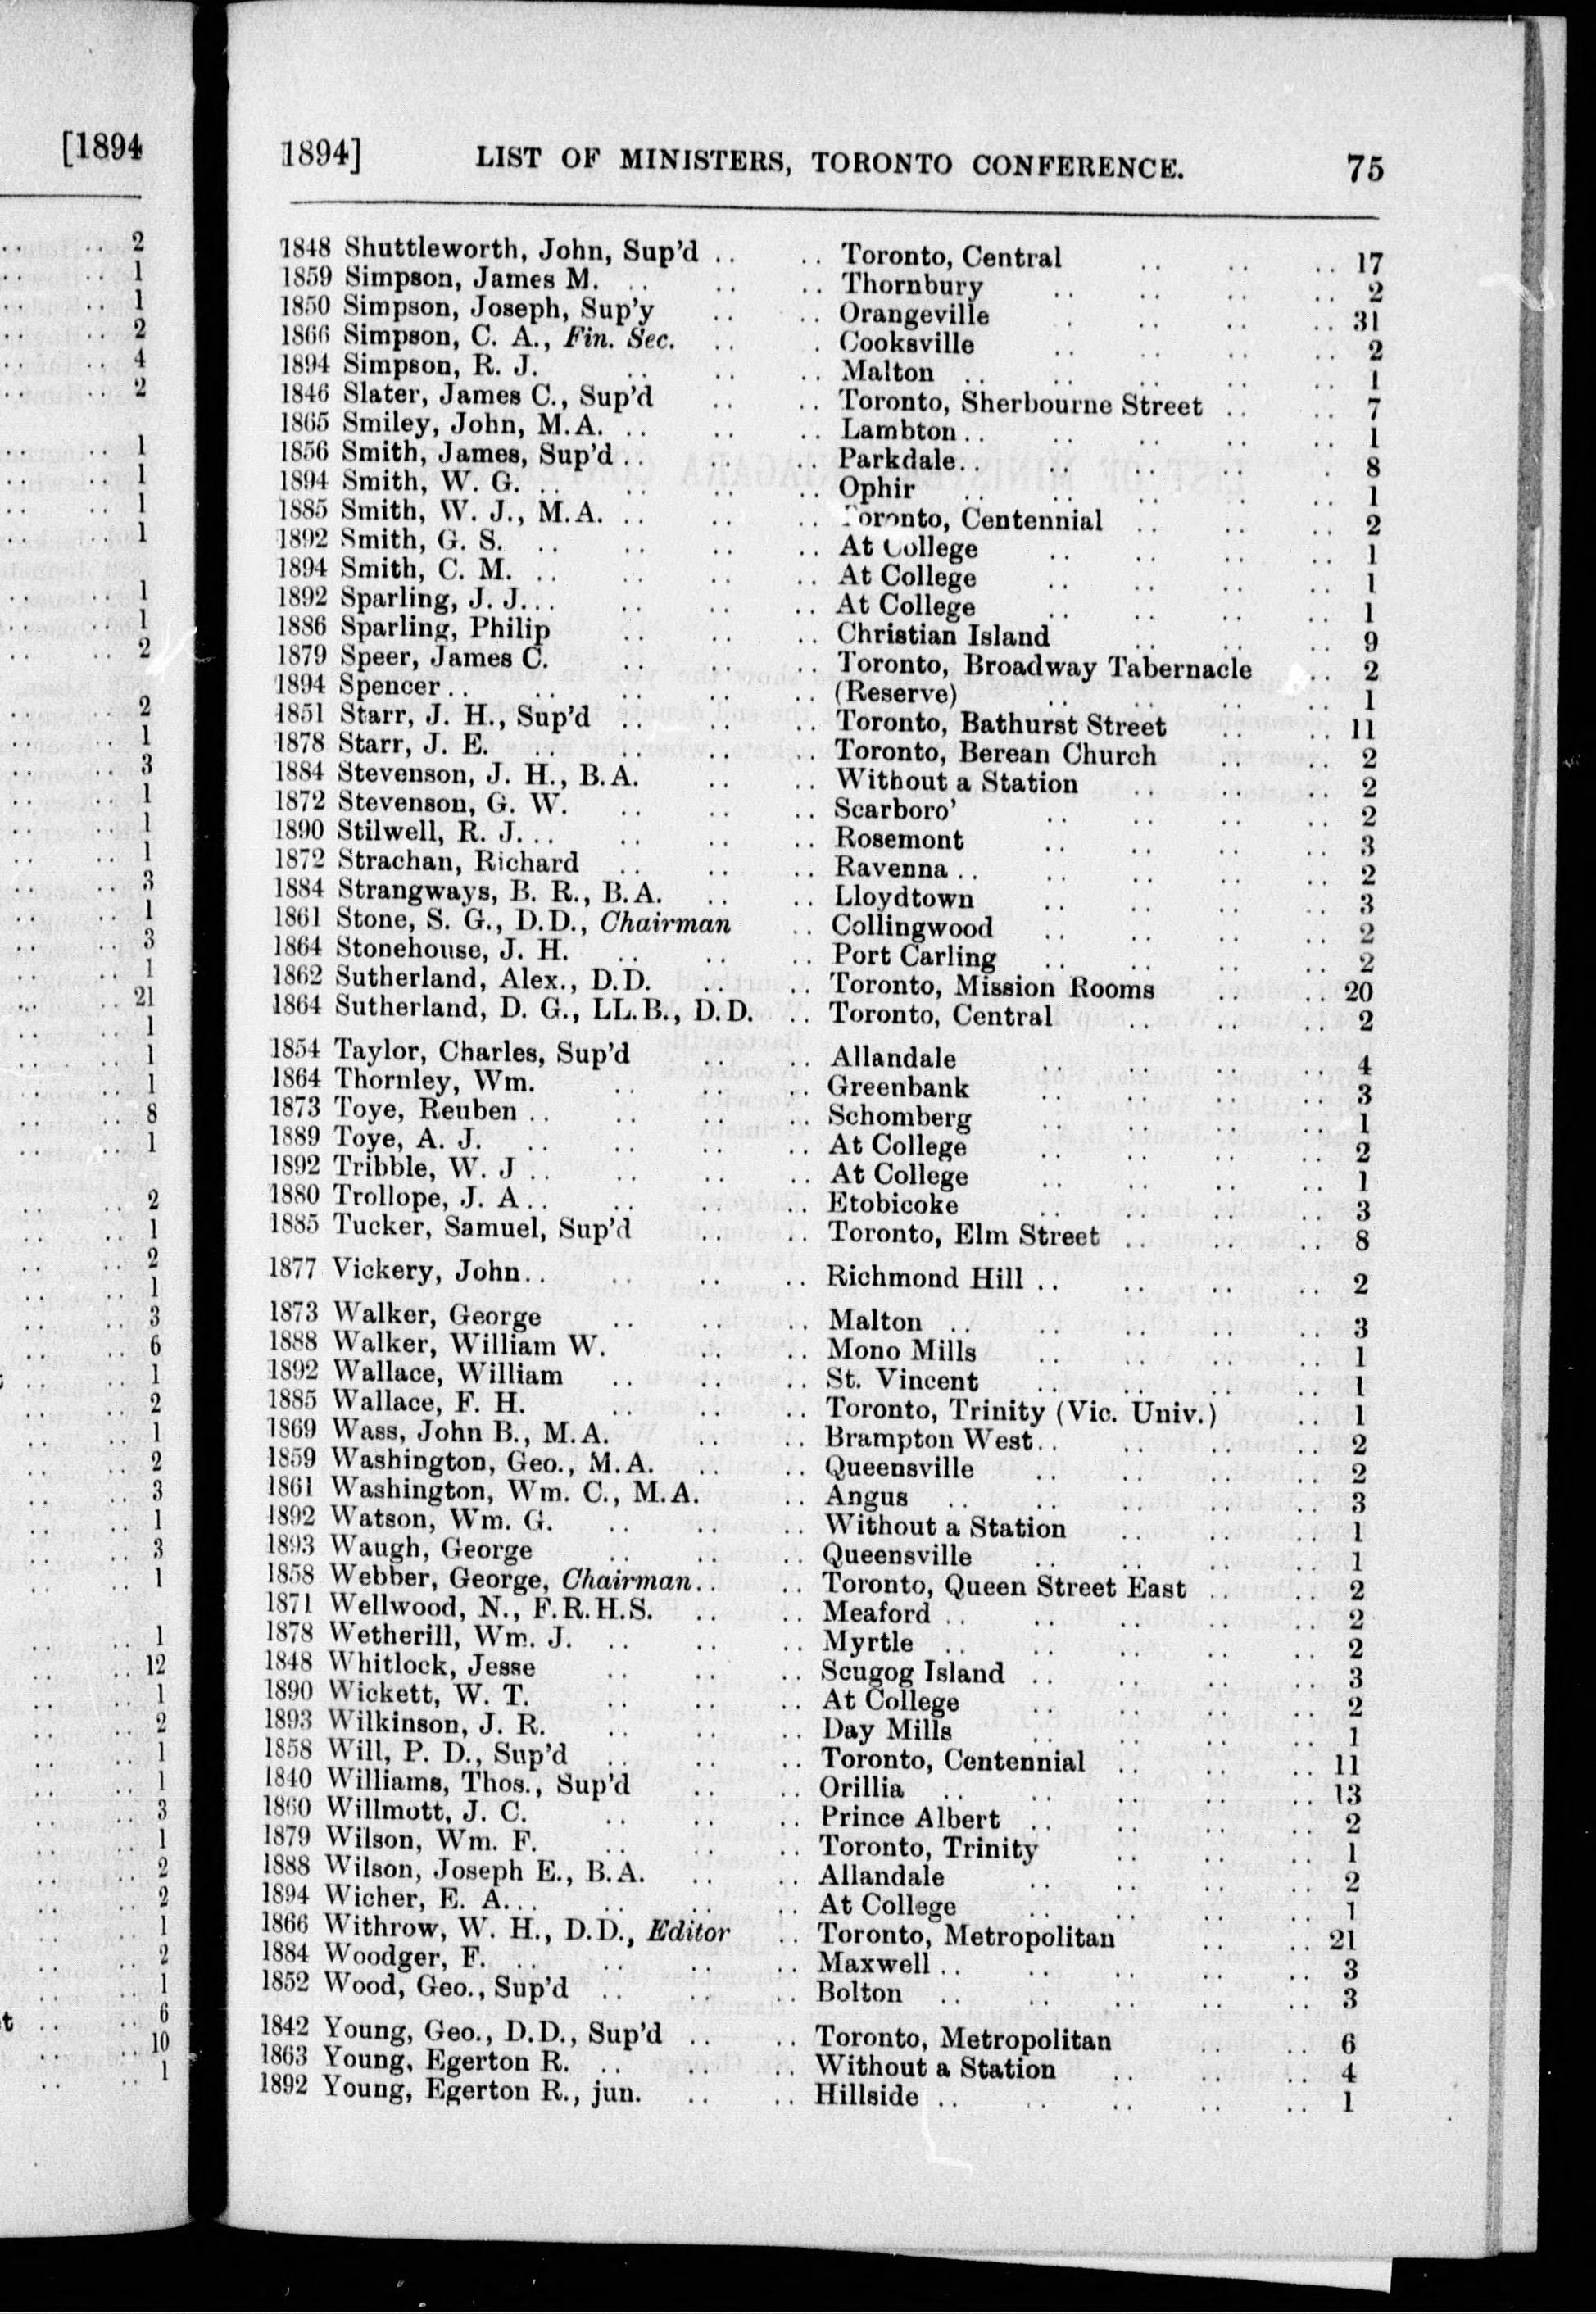 [1894
2
1
1
2
4
2
1
1
1
1
1
1
2
2
1
3
1
1
1
3
1
3
1
21
1
1
1
8
1
2
1
2
1
3
6
1
2
1
2
3
1
3
1
1
12
1
2
1
1
3
1
2
2
1
2
1
6
10
1
1894] LIST OF MINISTERS, TORONTO CONFERENCE. 75
1848 Shuttleworth, John, Sup'd .. .. Toronto, Central .. .. .. 17
1859 Simpson, James M. .. .. .. Thornbury .. .. .. .. 2
1850 Simpson, Joseph, Sup'y .. .. Orangeville .. .. .. .. 31
1866 Simpson, C. A., Fin. Sec. .. .. Cooksville .. .. .. .. 2
1894 Simpson, R. J. .. .. .. Malton .. .. .. .. .. 1
1846 Slater, James C., Sup'd .. .. Toronto, Sherbourne Street .. .. 7
1865 Smiley, John, M.A. .. .. .. Lambton .. .. .. .. .. 1
1856 Smith, James, Sup'd .. .. .. Parkdale .. .. .. .. .. 8
1894 Smith, W. G. .. .. .. .. Ophir .. .. .. .. .. 1
1885 Smith, W. J., M.A. .. .. .. Toronto, Centennial .. .. .. 2
1892 Smith, G. S. .. .. .. .. At College .. .. .. .. 1
1894 Smith, C. M. .. .. .. .. At College .. .. .. .. 1
1892 Sparling, J. J. .. .. .. .. At College .. .. .. .. 1
1886 Sparling, Philip .. .. .. Christian Island .. .. .. 9
1879 Speer, James C. .. .. .. Toronto, Broadway Tabernacle .. 2
1894 Spencer .. .. .. .. .. (Reserve) .. .. .. .. 1
1851 Starr, J. H., Sup'd .. .. .. Toronto, Bathurst Street .. .. 11
1878 Starr, J. E. .. .. .. .. Toronto, Berean Church .. .. 2
1884 Stevenson, J. H., B.A. .. .. Without a Station .. .. .. 2
1872 Stevenson, G. W. .. .. .. Scarboro' .. .. .. .. 2
1890 Stilwell, R. J. .. .. .. .. Rosemont .. .. .. .. 3
1872 Strachan, Richard .. .. .. Ravenna .. .. .. .. .. 2
1884 Strangways, B. R., B.A. .. .. Lloydtown .. .. .. .. 3
1861 Stone, S. G., D.D., Chairman .. Collingwood .. .. .. .. 2
1864 Stonehouse, J. H. .. .. .. Port Carling .. .. .. .. 2
1862 Sutherland, Alex., D.D. .. .. Toronto, Mission Rooms .. .. 20
1864 Sutherland, D. G., LL.B., D.D. .. Toronto, Central .. .. .. 2
1854 Taylor, Charles, Sup'd .. .. Allandale .. .. .. .. 4
1864 Thornley, Wm. .. .. .. Greenbank .. .. .. .. 3
1873 Toye, Reuben .. .. .. .. Schomberg .. .. .. .. 1
1889 Toye, A. J. .. .. .. .. At College .. .. .. .. 2
1892 Tribble, W. J .. .. .. .. At College .. .. .. .. 1
1880 Trollope, J. A .. .. .. .. Etobicoke .. .. .. .. 3
1885 Tucker, Samuel, Sup'd .. .. Toronto, Elm Street .. .. .. 8
1877 Vickery, John .. .. .. .. Richmond Hill .. .. .. .. 2
1873 Walker, George .. .. .. Malton .. .. .. .. .. 3
1888 Walker, William W. .. .. Mono Mills .. .. .. .. 1
1892 Wallace, William .. .. .. St. Vincent .. .. .. .. 1
1885 Wallace, F. H. .. .. .. Toronto, Trinity (Vic. Univ.) .. 1
1869 Wass, John B., M.A. .. .. Brampton West .. .. .. .. 2
1859 Washington, Geo., M.A. .. .. Queensville .. .. .. .. 2
1861 Washington, Wm. C., M.A. .. Angus .. .. .. .. .. 3
1892 Watson, Wm. G. .. .. .. Without a Station .. .. .. 1
1893 Waugh, George .. .. .. Queensville .. .. .. .. 1
1858 Webber, George, Chairman .. .. Toronto, Queen Street East .. .. 2
1871 Wellwood, N., F.R.H.S. .. .. Meaford .. .. .. .. .. 2
1878 Wetherill, Wm. J. .. .. .. Myrtle .. .. .. .. .. 2
1848 Whitlock, Jesse .. .. .. Scugog Island .. .. .. .. 3
1890 Wickett, W. T. .. .. .. At College .. .. .. .. 2
1893 Wilkinson, J. R. .. .. .. Day Mills .. .. .. .. 1
1858 Will, P. D., Sup'd .. .. .. Toronto, Centennial .. .. .. 11
1840 Williams, Thos., Sup'd .. .. Orillia .. .. .. .. .. 13
1860 Willmott, J. C. .. .. .. Prince Albert .. .. .. .. 2
1879 Wilson, Wm. F. .. .. .. Toronto, Trinity .. .. .. 1
1888 Wilson, Joseph E., B.A. .. .. Allandale .. .. .. .. 2
1894 Wicher, E. A. .. .. .. .. At College .. .. .. .. 1
1866 Withrow, W. H., D.D., Editor .. Toronto, Metropolitan .. .. 21
1884 Woodger, F. .. .. .. .. Maxwell .. .. .. .. .. 3
1852 Wood, Geo., Sup'd .. .. .. Bolton .. .. .. .. .. 3
1842 Young, Geo., D.D., Sup'd .. .. Toronto, Metropolitan .. .. 6
1863 Young, Egerton R. .. .. .. Without a Station .. .. .. 4
1892 Young, Egerton R., jun. .. .. Hillside .. .. .. .. .. 1